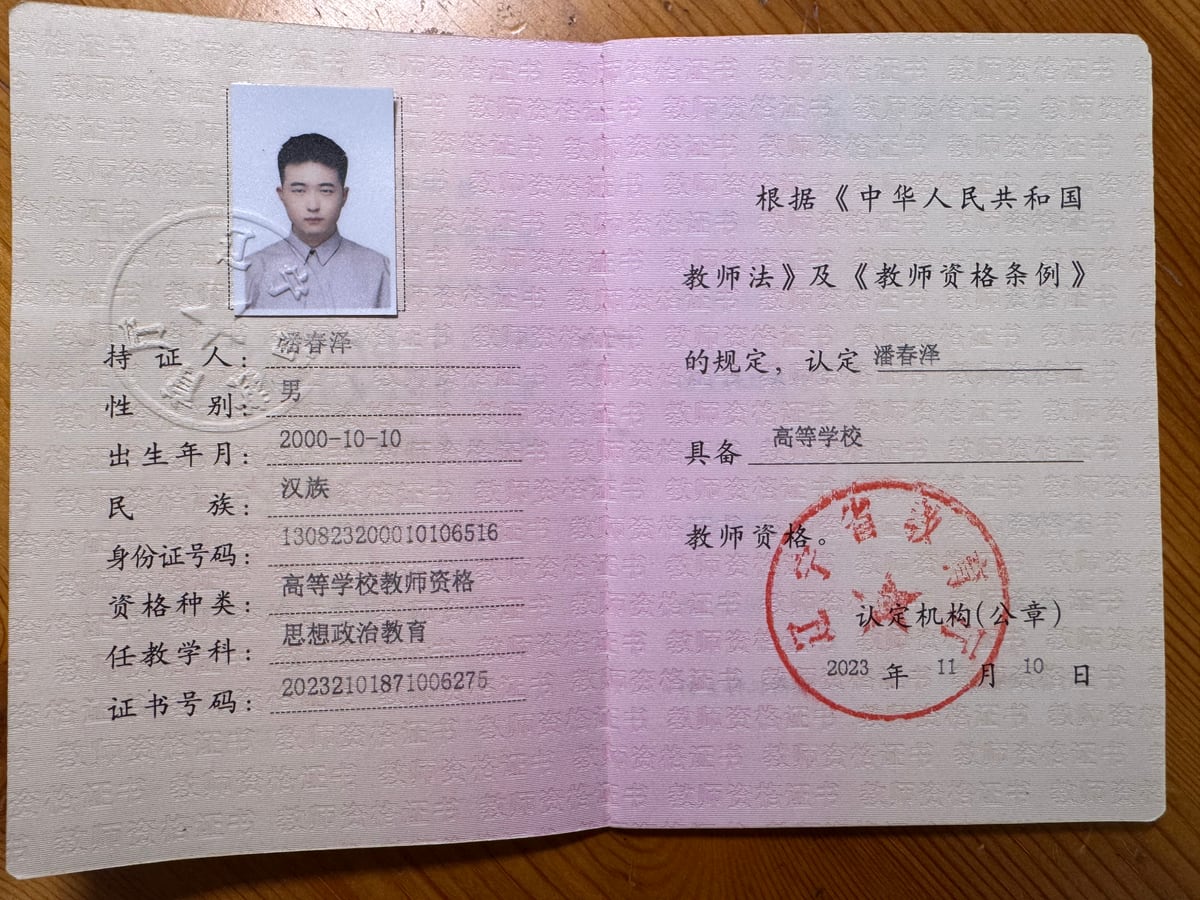 持证人：潘春泽
性别：男
出生年月：2000-10-10
民族：汉族
身份证号码：130823200010106516
资格种类：高等学校教师资格
任教学科：思想政治教育
证书号码：20232101871006275
根据《中华人民共和国
教师法》及《教师资格条例》
的规定，认定 潘春泽
具备 高等学校
教师资格。
辽宁省教育厅
认定机构(公章)
2023 年 11 月 10 日